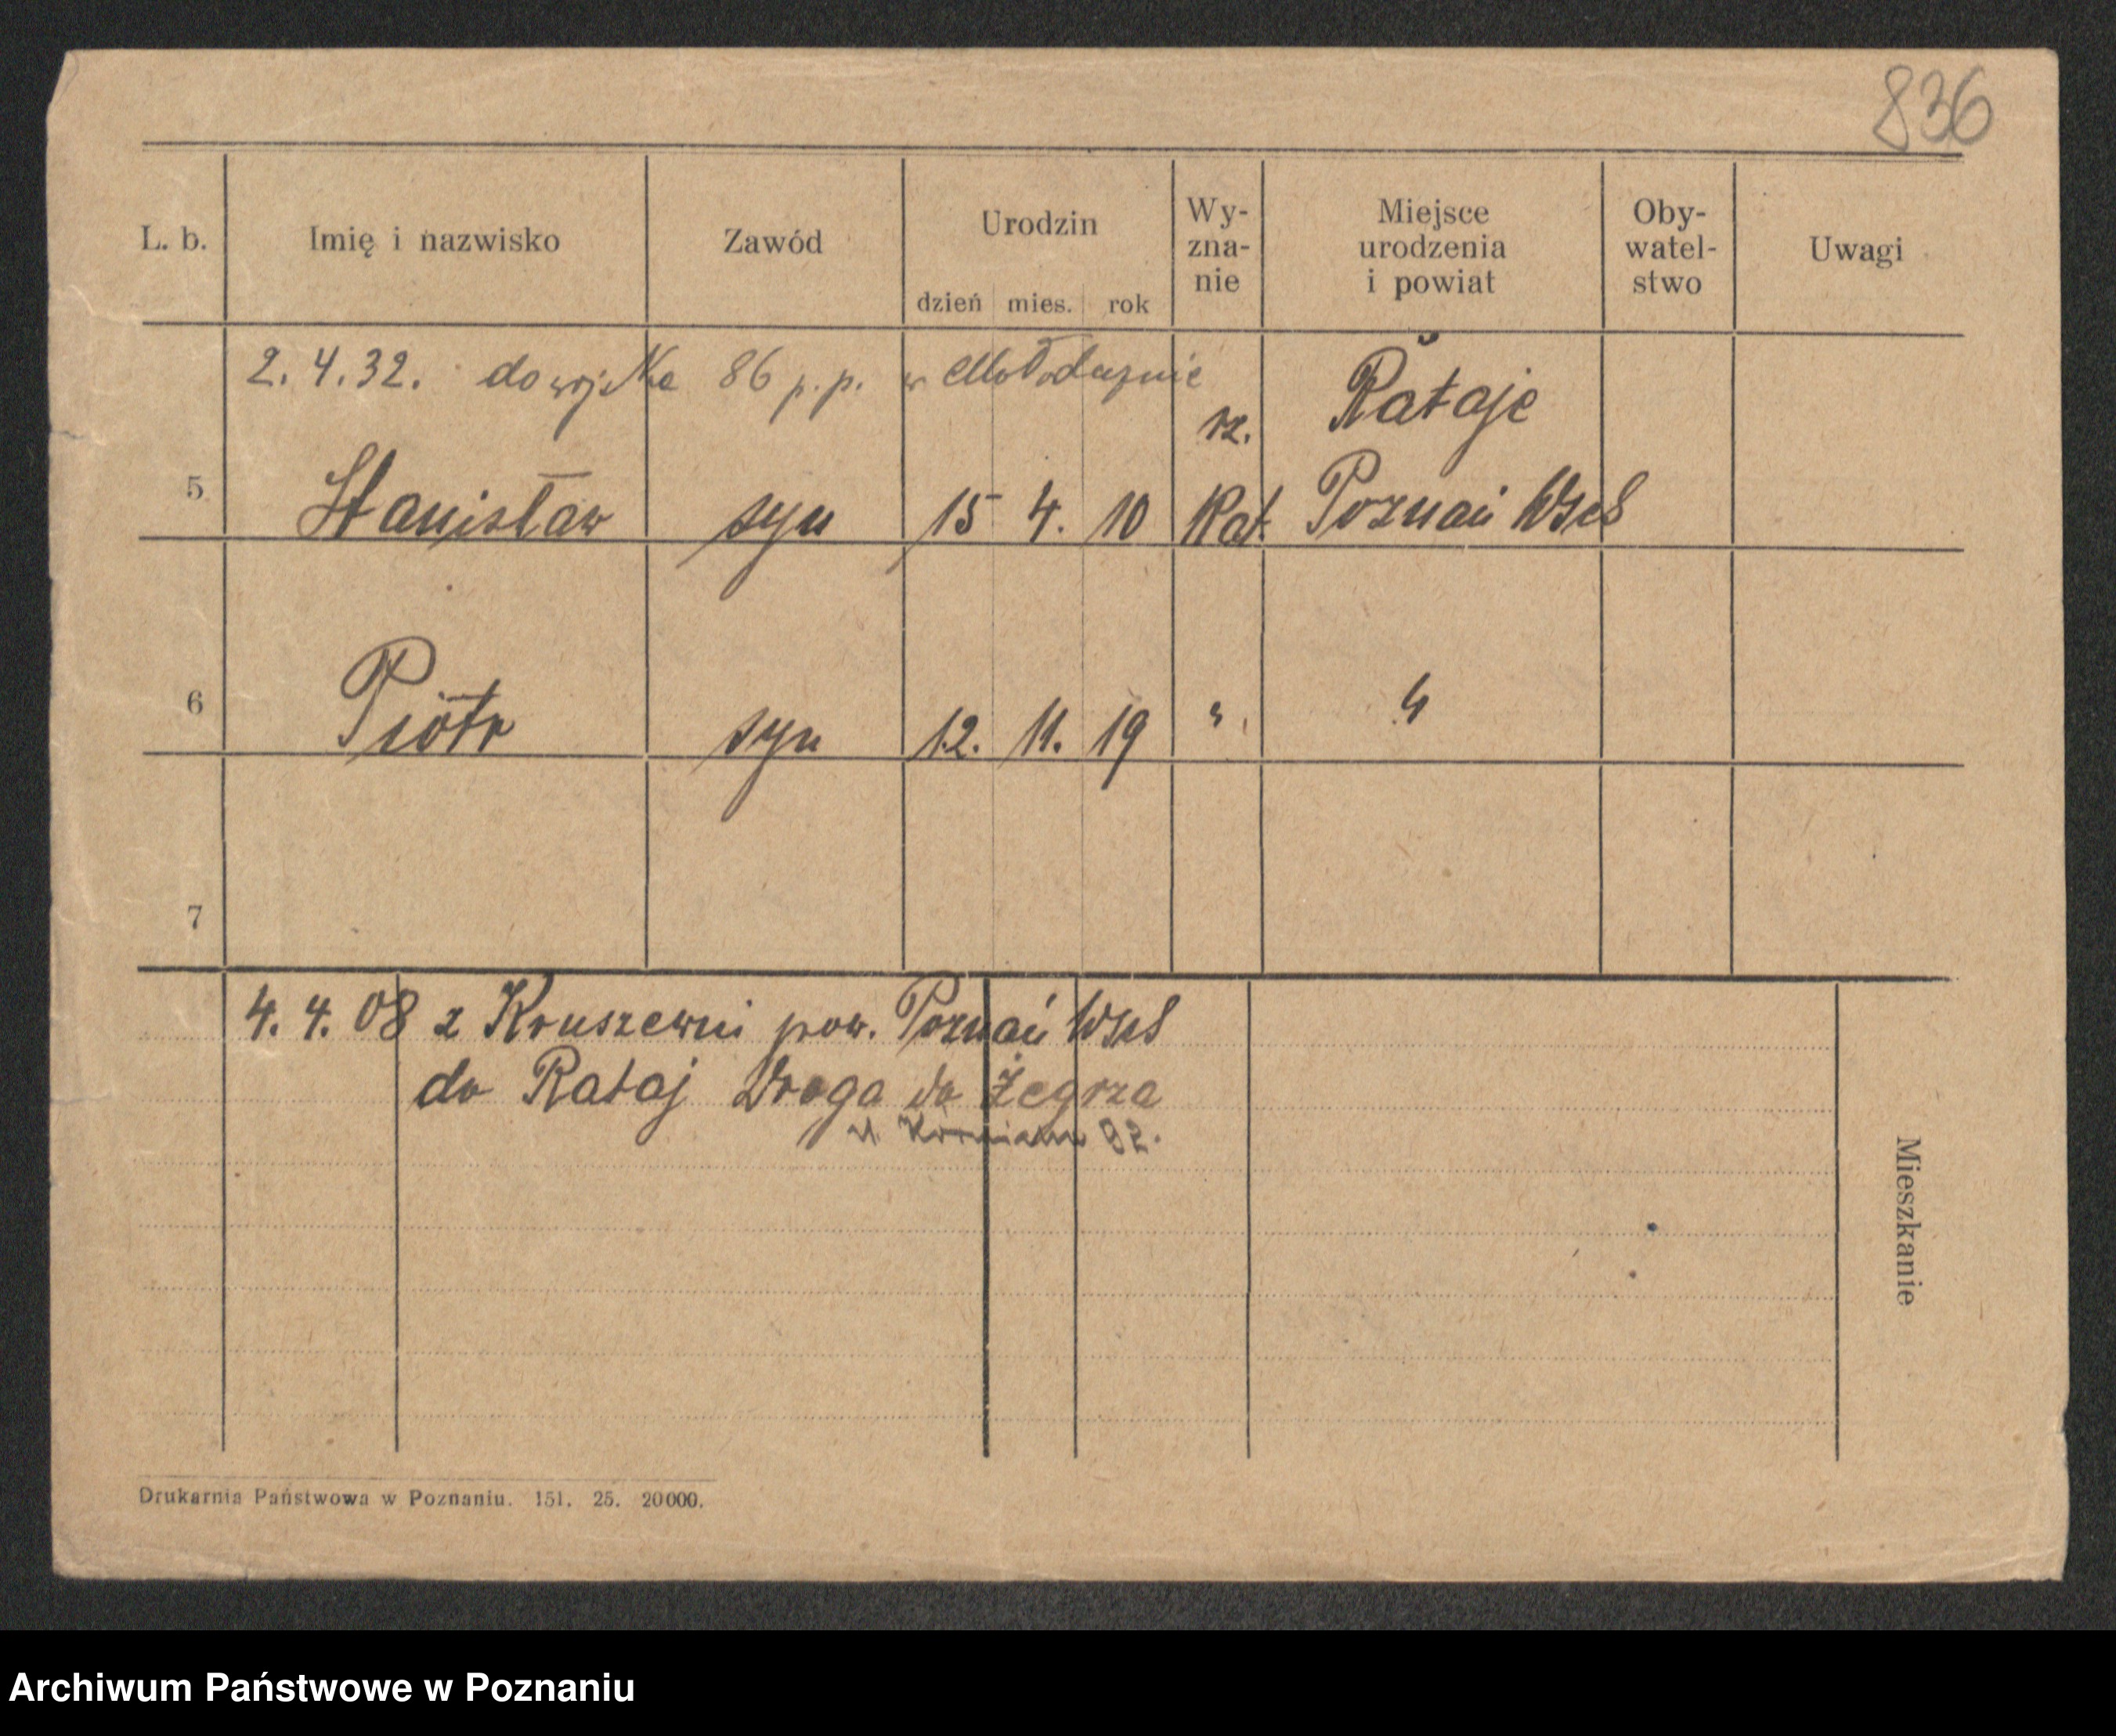 836
L. b. Imię i nazwisko Zawód Urodzin Wy- Miejsce Oby- Uwagi
zna- urodzenia watel-
nie i powiat stwo
dzień mies. rok
2. 4. 32. do wojska 86 p. p. w Mołodecznie
rz. Rataje
5 Stanisław syn 15 4. 10 Kat. Poznań Wsch
6 Piotr syn 12. 11. 19 " "
7
4. 4. 08 z Kruszewni pow. Poznań Wsch
do Rataj Droga do Żegrza
ul. 92.
Mieszkanie
Drukarnia Państwowa w Poznaniu. 151. 25. 20000.
Archiwum Państwowe w Poznaniu